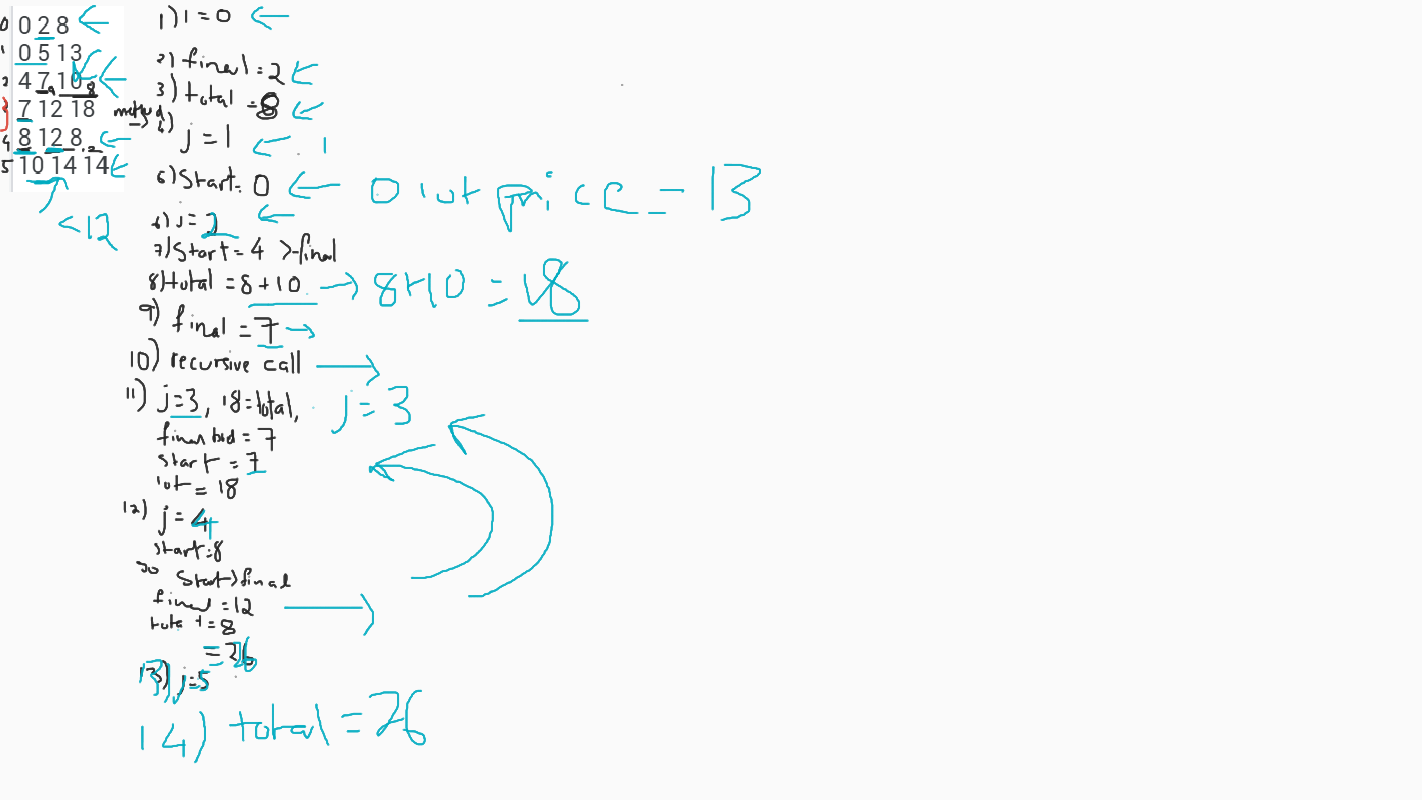 0 0 2 8
1 0 5 13
2 4 7 10 8
3 7 12 18
4 8 12 8
5 10 14 14
<12
1) i = 0
2) final = 2
3) total = 8
method
j = 1
1
6) Start = 0
0 lot price = 13
6) j = 2
7) Start = 4 > final
8) total = 8 + 10 → 8 + 10 = 18
9) final = 7
10) recursive call
11) j = 3, 18 = total,
j = 3
final bid = 7
start = 7
lot = 18
12) j = 4
start = 8
so start > final
final = 12
total + = 8
= 26
13) j = 5
14) total = 26